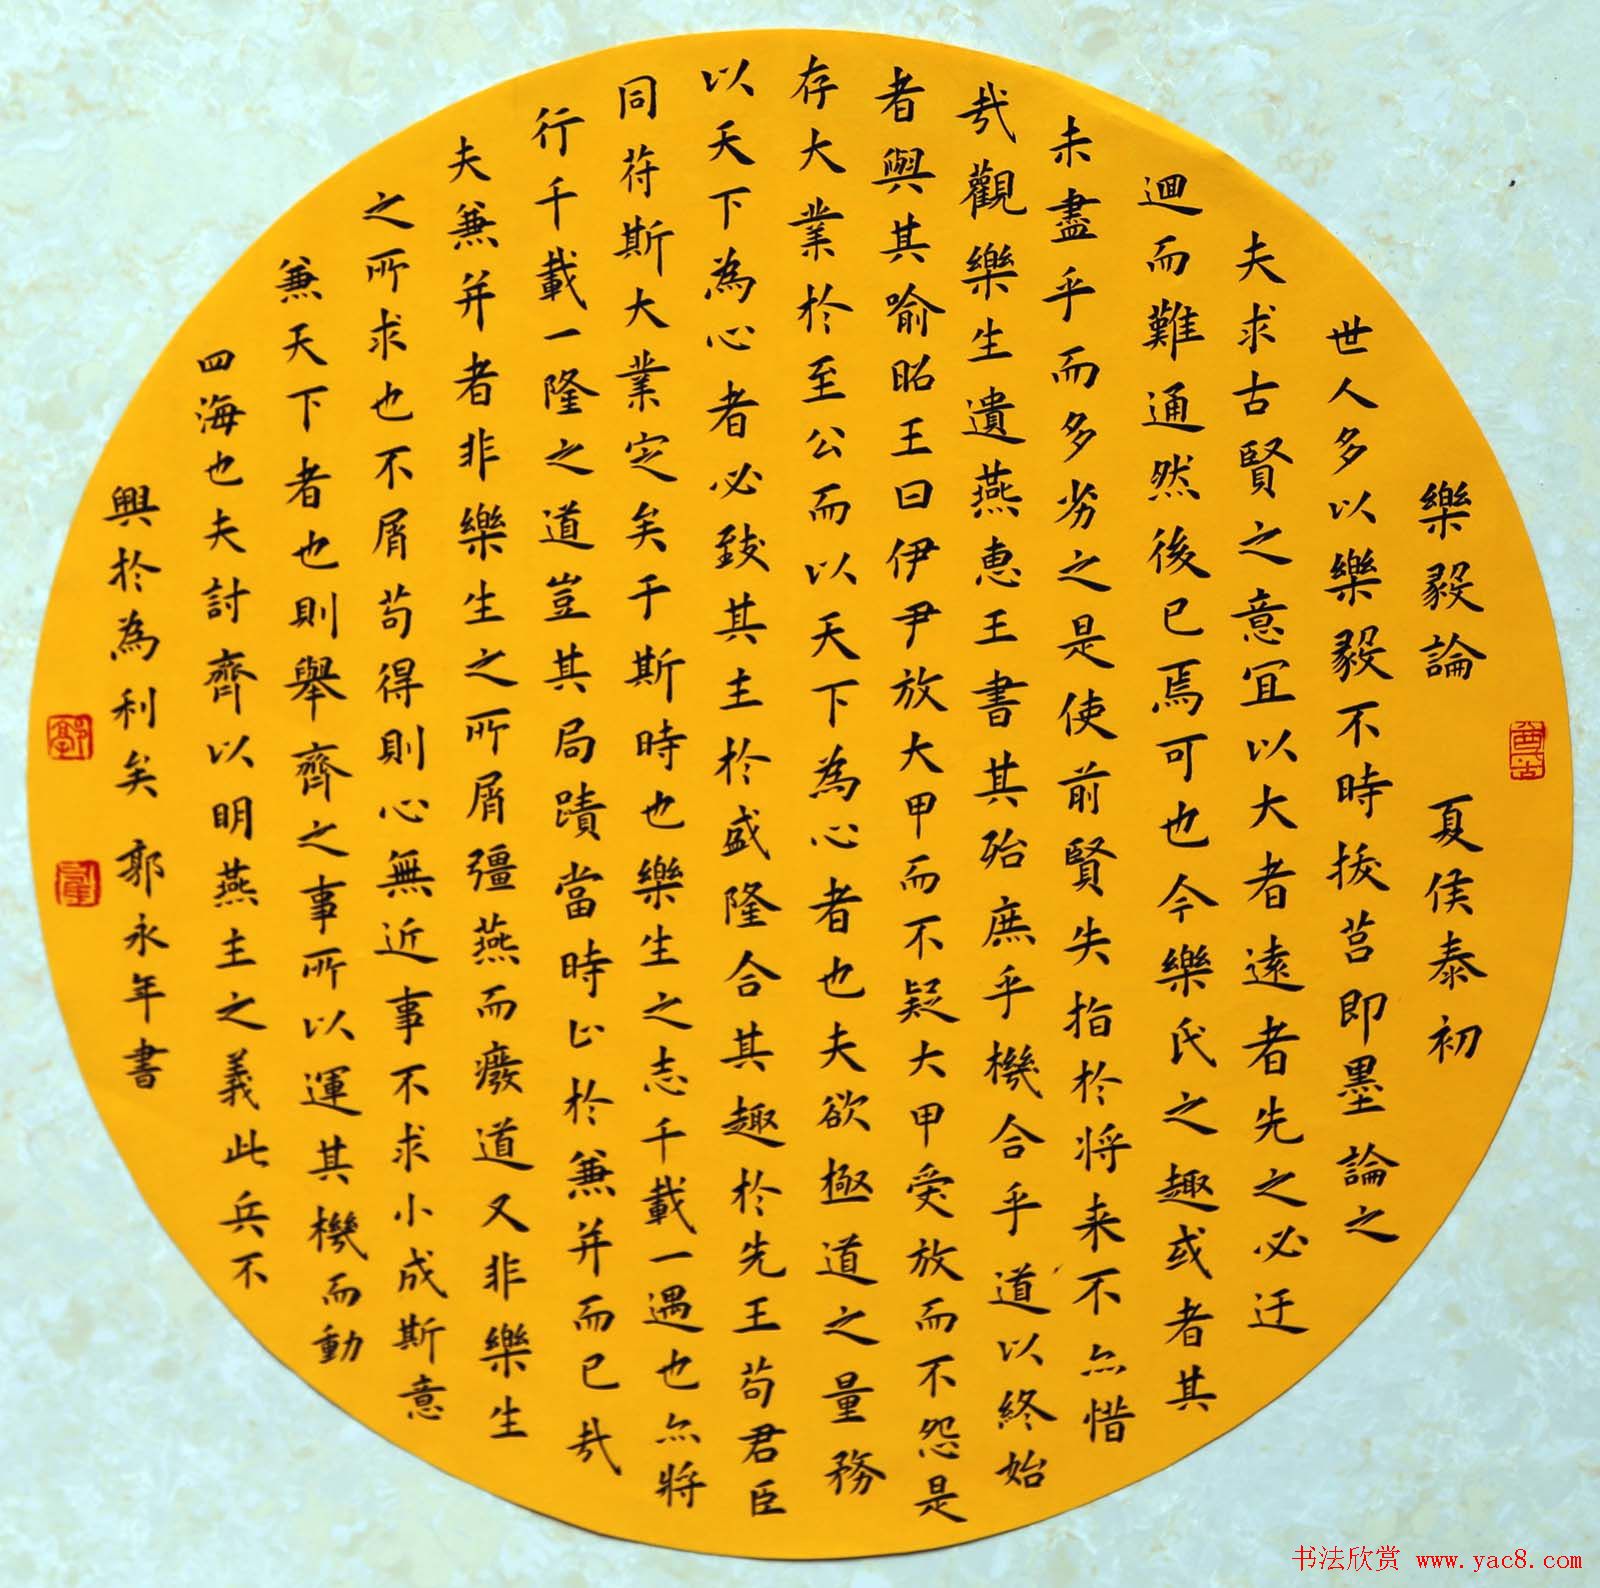 樂毅論 夏侯泰初
世人多以樂毅不時拔莒即墨論之
夫求古賢之意宜以大者遠者先之必迂
迴而難通然後已焉可也今樂氏之趣或者其
未盡乎而多劣之是使前賢失指於將来不亦惜
哉觀樂生遺燕惠王書其殆庶乎機合乎道以終始
者與其喻昭王曰伊尹放大甲而不疑大甲受放而不怨是
存大業於至公而以天下為心者也夫欲極道之量務
以天下為心者必致其主於盛隆合其趣於先王苟君臣
同符斯大業定矣于斯時也樂生之志千載一遇也亦將
行千載一隆之道豈其局蹟當時止於兼并而已哉
夫兼并者非樂生之所屑彊燕而癈道又非樂生
之所求也不屑苟得則心無近事不求小成斯意
兼天下者也則舉齊之事所以運其機而動
四海也夫討齊以明燕主之義此兵不
興於為利矣 郭永年書
书法欣赏 www.yac8.com